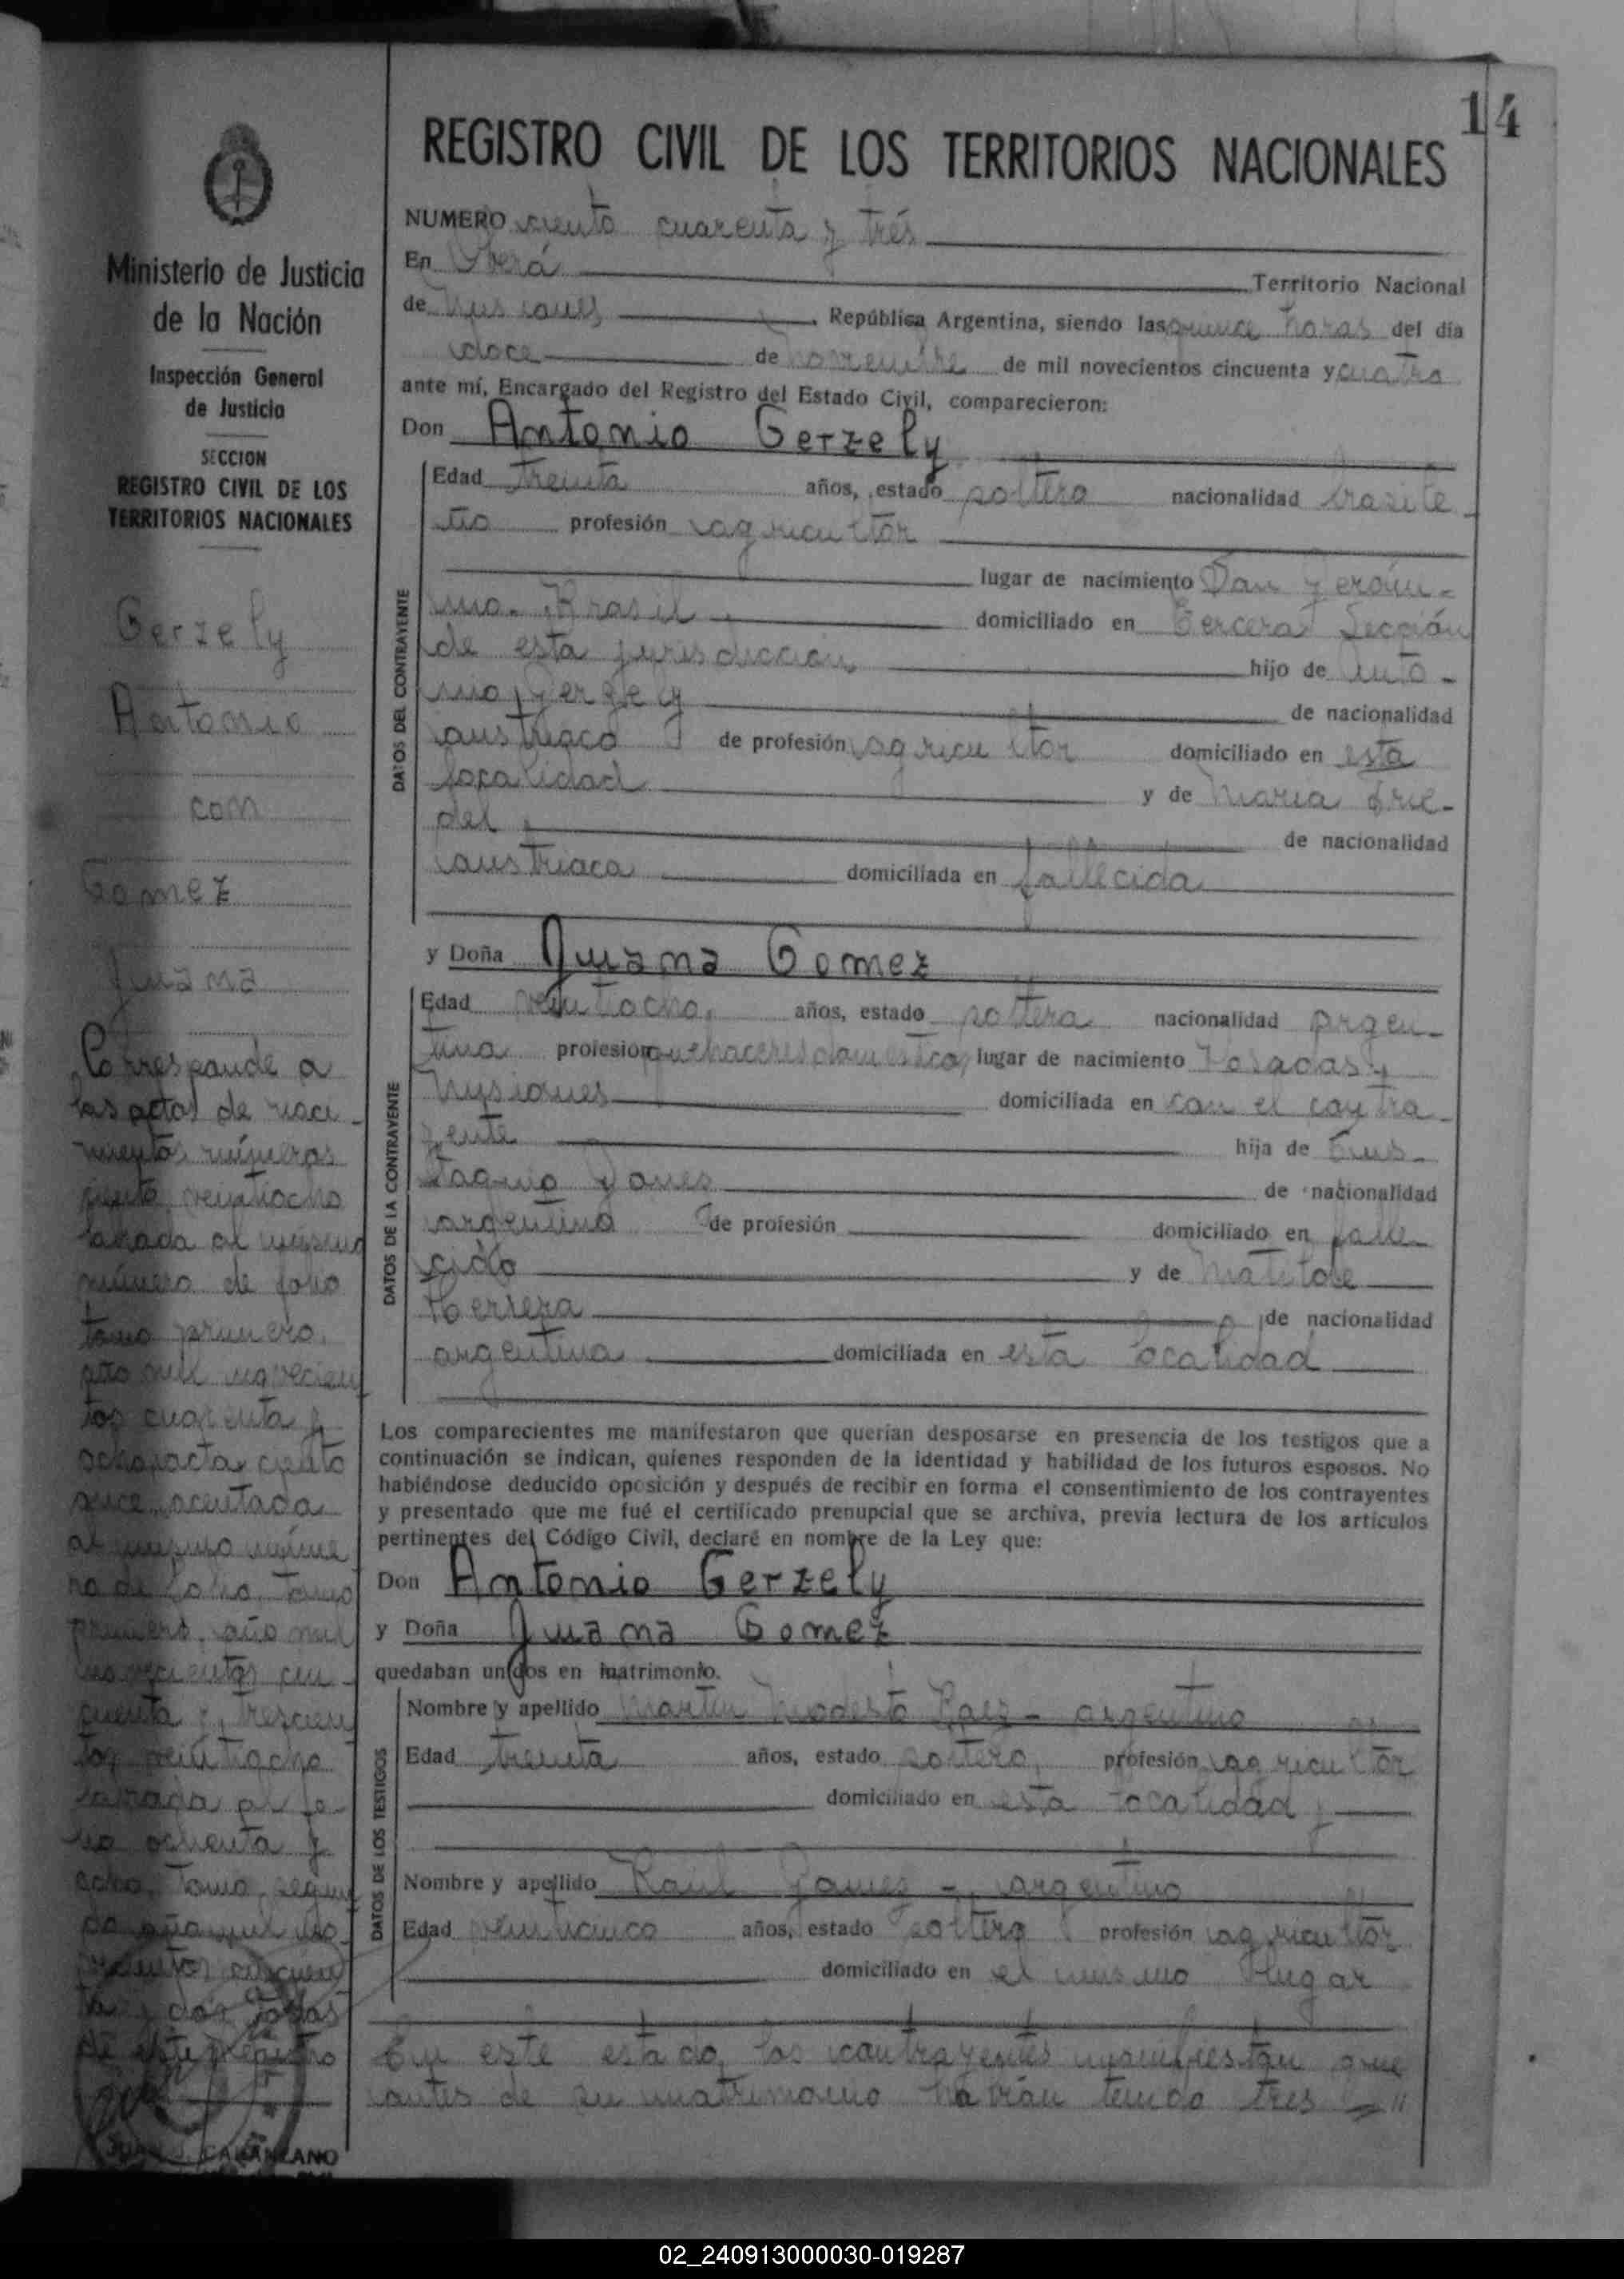 14
REGISTRO CIVIL DE LOS TERRITORIOS NACIONALES
Ministerio de Justicia
de la Nación
Inspección General
de Justicia
SECCION
REGISTRO CIVIL DE LOS
TERRITORIOS NACIONALES
Gerzely
Antonio
con
Gomez
Juana
Corresponde a
las actas de naci-
mientos números
ciento veintiocho
labrada al mismo
número de folio
tomo primero,
año mil novecien
tos cuarenta y
ocho, acta ciento
once, asentada
al mismo núme
ro de folio, tomo
primero, año mil
novecientos cin-
cuenta y, trescien
tos veintiocho
labrada al fo-
lio ochenta y
ocho, tomo segun
do año mil no-
vecientos cincuen
ta y dos todas
de este registro
JUAN J. CARANZANO
NUMERO ciento cuarenta y trés
En Oberá Territorio Nacional
de Misiones, República Argentina, siendo las quince horas del día
doce de noviembre de mil novecientos cincuenta y cuatro
ante mí, Encargado del Registro del Estado Civil, comparecieron:
Don Antonio Gerzely
DATOS DEL CONTRAYENTE
Edad treinta años, estado soltero nacionalidad brasile-
ño profesión agricultor
lugar de nacimiento San Jeróni-
mo. Brasil domiciliado en Tercera Sección
de esta jurisdicción hijo de Anto-
nio Gerzely de nacionalidad
austriaco de profesión agricultor domiciliado en esta
localidad y de María Frie-
del de nacionalidad
austriaca domiciliada en fallecida
y Doña Juana Gomez
DATOS DE LA CONTRAYENTE
Edad veintiocho, años, estado soltera nacionalidad argen-
tina profesion quehaceres domésticos, lugar de nacimiento Posadas,
Misiones domiciliada en con el contra-
yente hija de Eus-
taquio Gomez de nacionalidad
argentino de profesión domiciliado en falle-
cido y de Matilde
Herrera de nacionalidad
argentina domiciliada en esta localidad
Los comparecientes me manifestaron que querían desposarse en presencia de los testigos que a
continuación se indican, quienes responden de la identidad y habilidad de los futuros esposos. No
habiéndose deducido oposición y después de recibir en forma el consentimiento de los contrayentes
y presentado que me fué el certificado prenupcial que se archiva, previa lectura de los artículos
pertinentes del Código Civil, declaré en nombre de la Ley que:
Don Antonio Gerzely
y Doña Juana Gomez
quedaban unidos en matrimonio.
DATOS DE LOS TESTIGOS
Nombre y apellido Martín Modesto Paez - argentino
Edad treinta años, estado soltero, profesión agricultor
domiciliado en esta localidad y
Nombre y apellido Raúl Gomez -, argentino
Edad veinticinco años, estado soltero profesión agricultor
domiciliado en el mismo lugar
En este estado, los contrayentes manifiestan que
antes de su matrimonio habían tenido tres
02_240913000030-019287